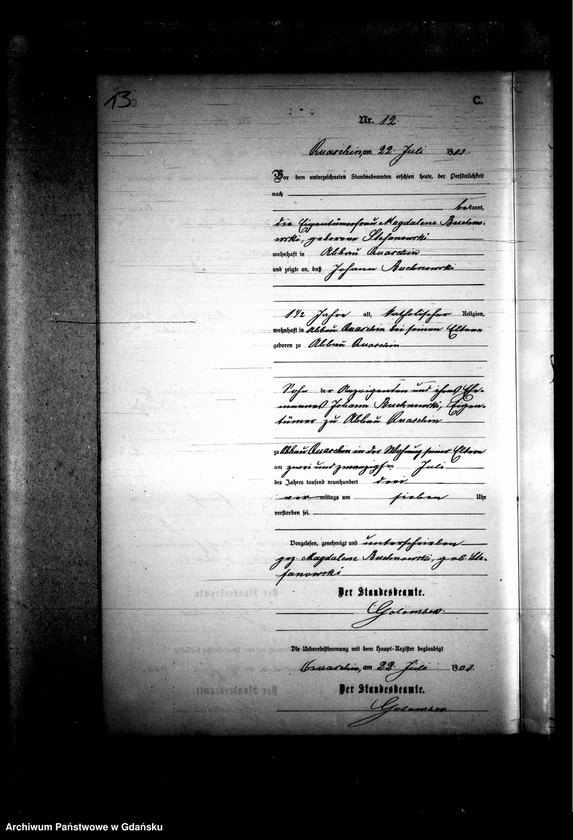 13
C.
Nr. 12
Quaschin, am 22. Juli 1903.
Vor dem unterzeichneten Standesbeamten erschien heute, der Persönlichkeit
nach
bekannt,
die Eigentümerfrau Magdalene
geborene Stefanowski
wohnhaft in Abbau Quaschin
und zeigte an, daß Johann
1 1/2 Jahre alt, katholischer Religion,
wohnhaft in Abbau Quaschin bei seinen Eltern
geboren zu Abbau Quaschin
Sohn der Anzeigenden und ihres Ehe-
mannes Johann Eigen-
tümer zu Abbau Quaschin
zu Abbau Quaschin in der Wohnung seiner Eltern
am zwei und zwanzigsten Juli
des Jahres tausend neunhundert drei
vor mittags um sieben Uhr
verstorben sei.
Vorgelesen, genehmigt und unterschrieben
gez. Magdalene geb. Ste-
fanowski
Der Standesbeamte.
Die Uebereinstimmung mit dem Haupt-Register beglaubigt
Quaschin, am 22. Juli 1903.
Der Standesbeamte.
Archiwum Państwowe w Gdańsku